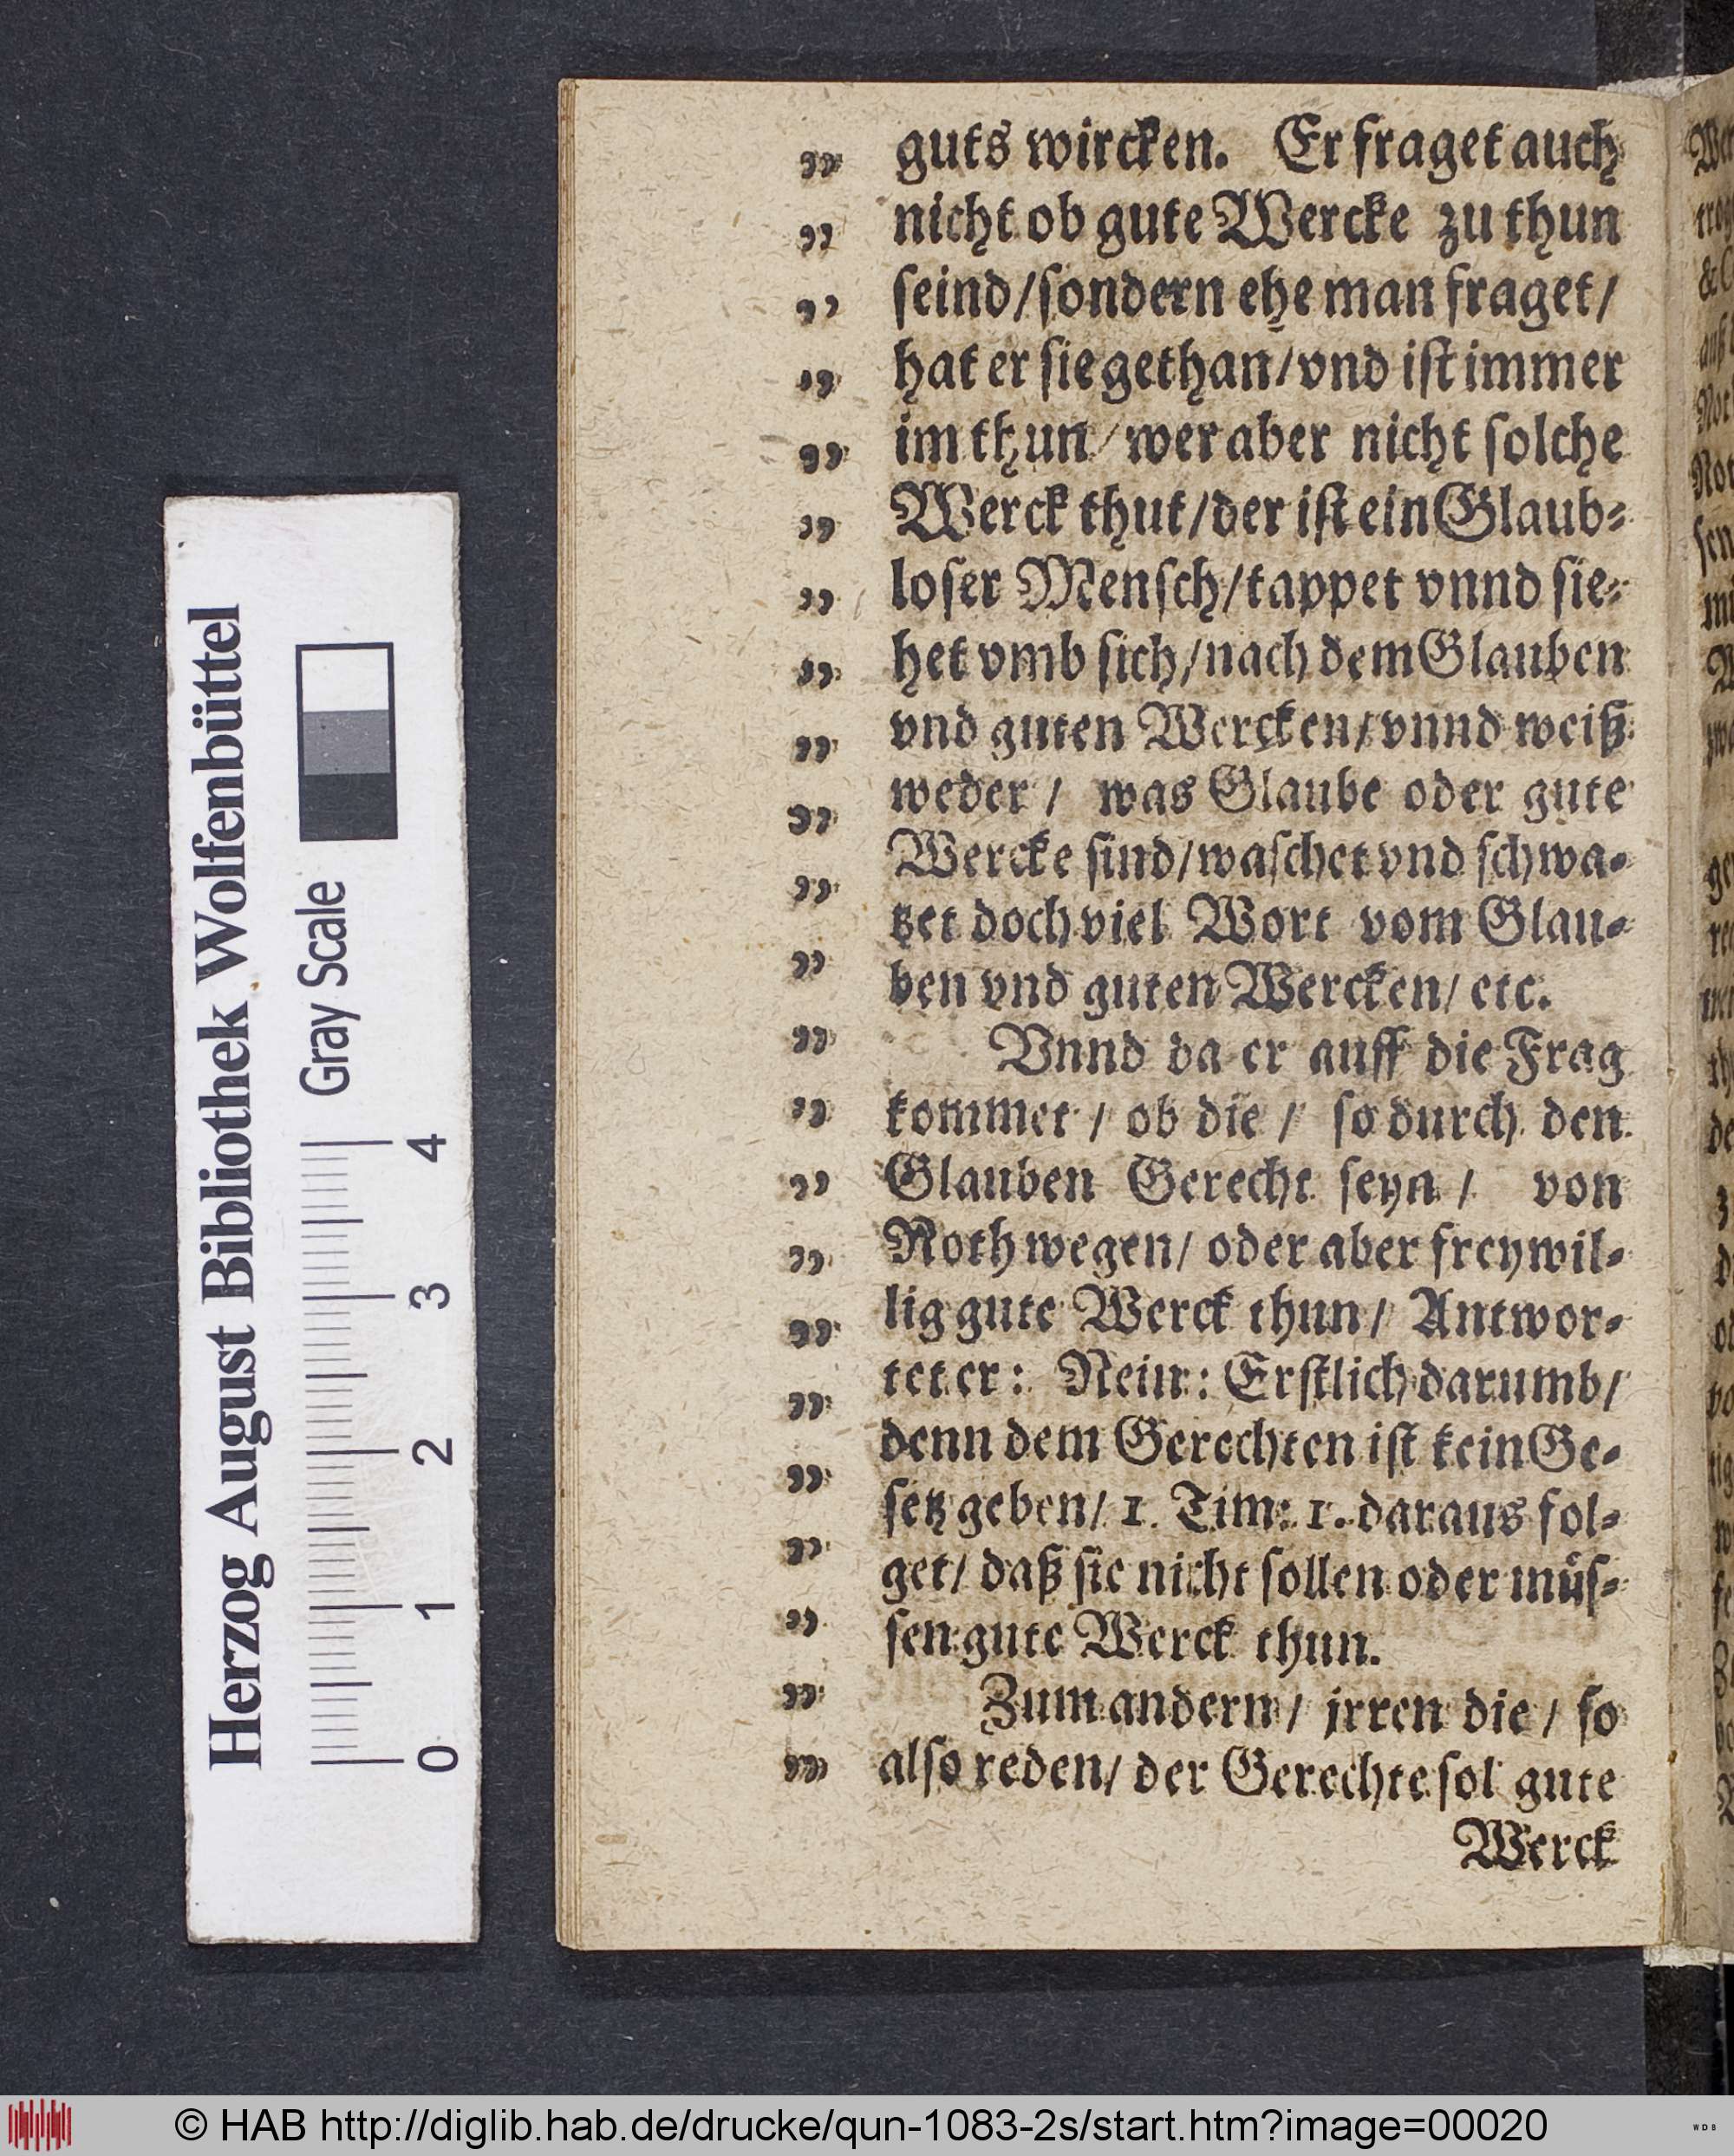 „ guts wircken. Er fraget auch
„ nicht ob gute Wercke zu thun
„ ſeind/ſondern ehe man fraget/
„ hat er ſie gethan/vnd iſt immer
„ im thun/wer aber nicht ſolche
„ Werck thut/der iſt ein Glaub⸗
„ loſer Menſch/tappet vnnd ſie⸗
„ het vmb ſich/nach dem Glauben
„ vnd guten Wercken/vnnd weiß
„ weder / was Glaube oder gute
„ Wercke ſind/waſchet vnd ſchwa⸗
„ tzet doch viel Wort vom Glau⸗
„ ben vnd guten Wercken/ etc.
„ Vnnd da er auff die Frag
„ kommet / ob die / ſo durch den
„ Glauben Gerecht ſeyn / von
„ Noth wegen/ oder aber freywil⸗
„ lig gute Werck thun/ Antwor⸗
„ tet er: Nein: Erſtlich darumb/
„ denn dem Gerechten iſt kein Ge⸗
„ ſetz geben/ 1. Tim: 1. daraus fol⸗
„ get/ daß ſie nicht ſollen oder müſ⸗
„ ſen gute Werck thun.
„ Zum andern/ jrren die / ſo
„ alſo reden/ der Gerechte ſol gute
Werck
Herzog August Bibliothek Wolfenbüttel
Gray Scale
0 1 2 3 4
© HAB http://diglib.hab.de/drucke/qun-1083-2s/start.htm?image=00020
WDB